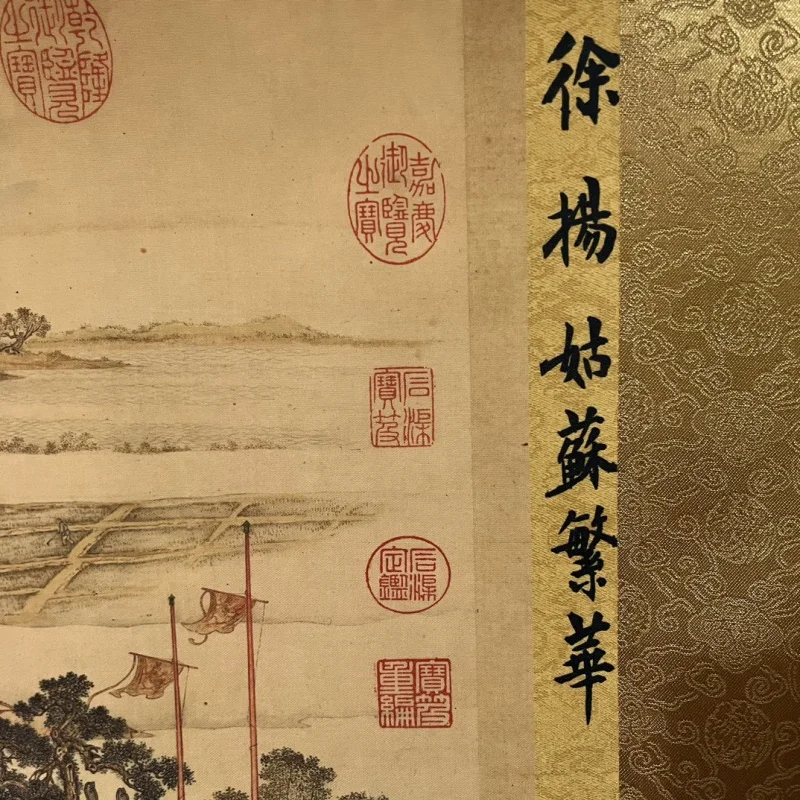 徐揚姑蘇繁華
嘉慶
御覽
之寶
石渠
寶笈
石渠
定鑑
寶笈
重編
乾隆
御覽
之寶